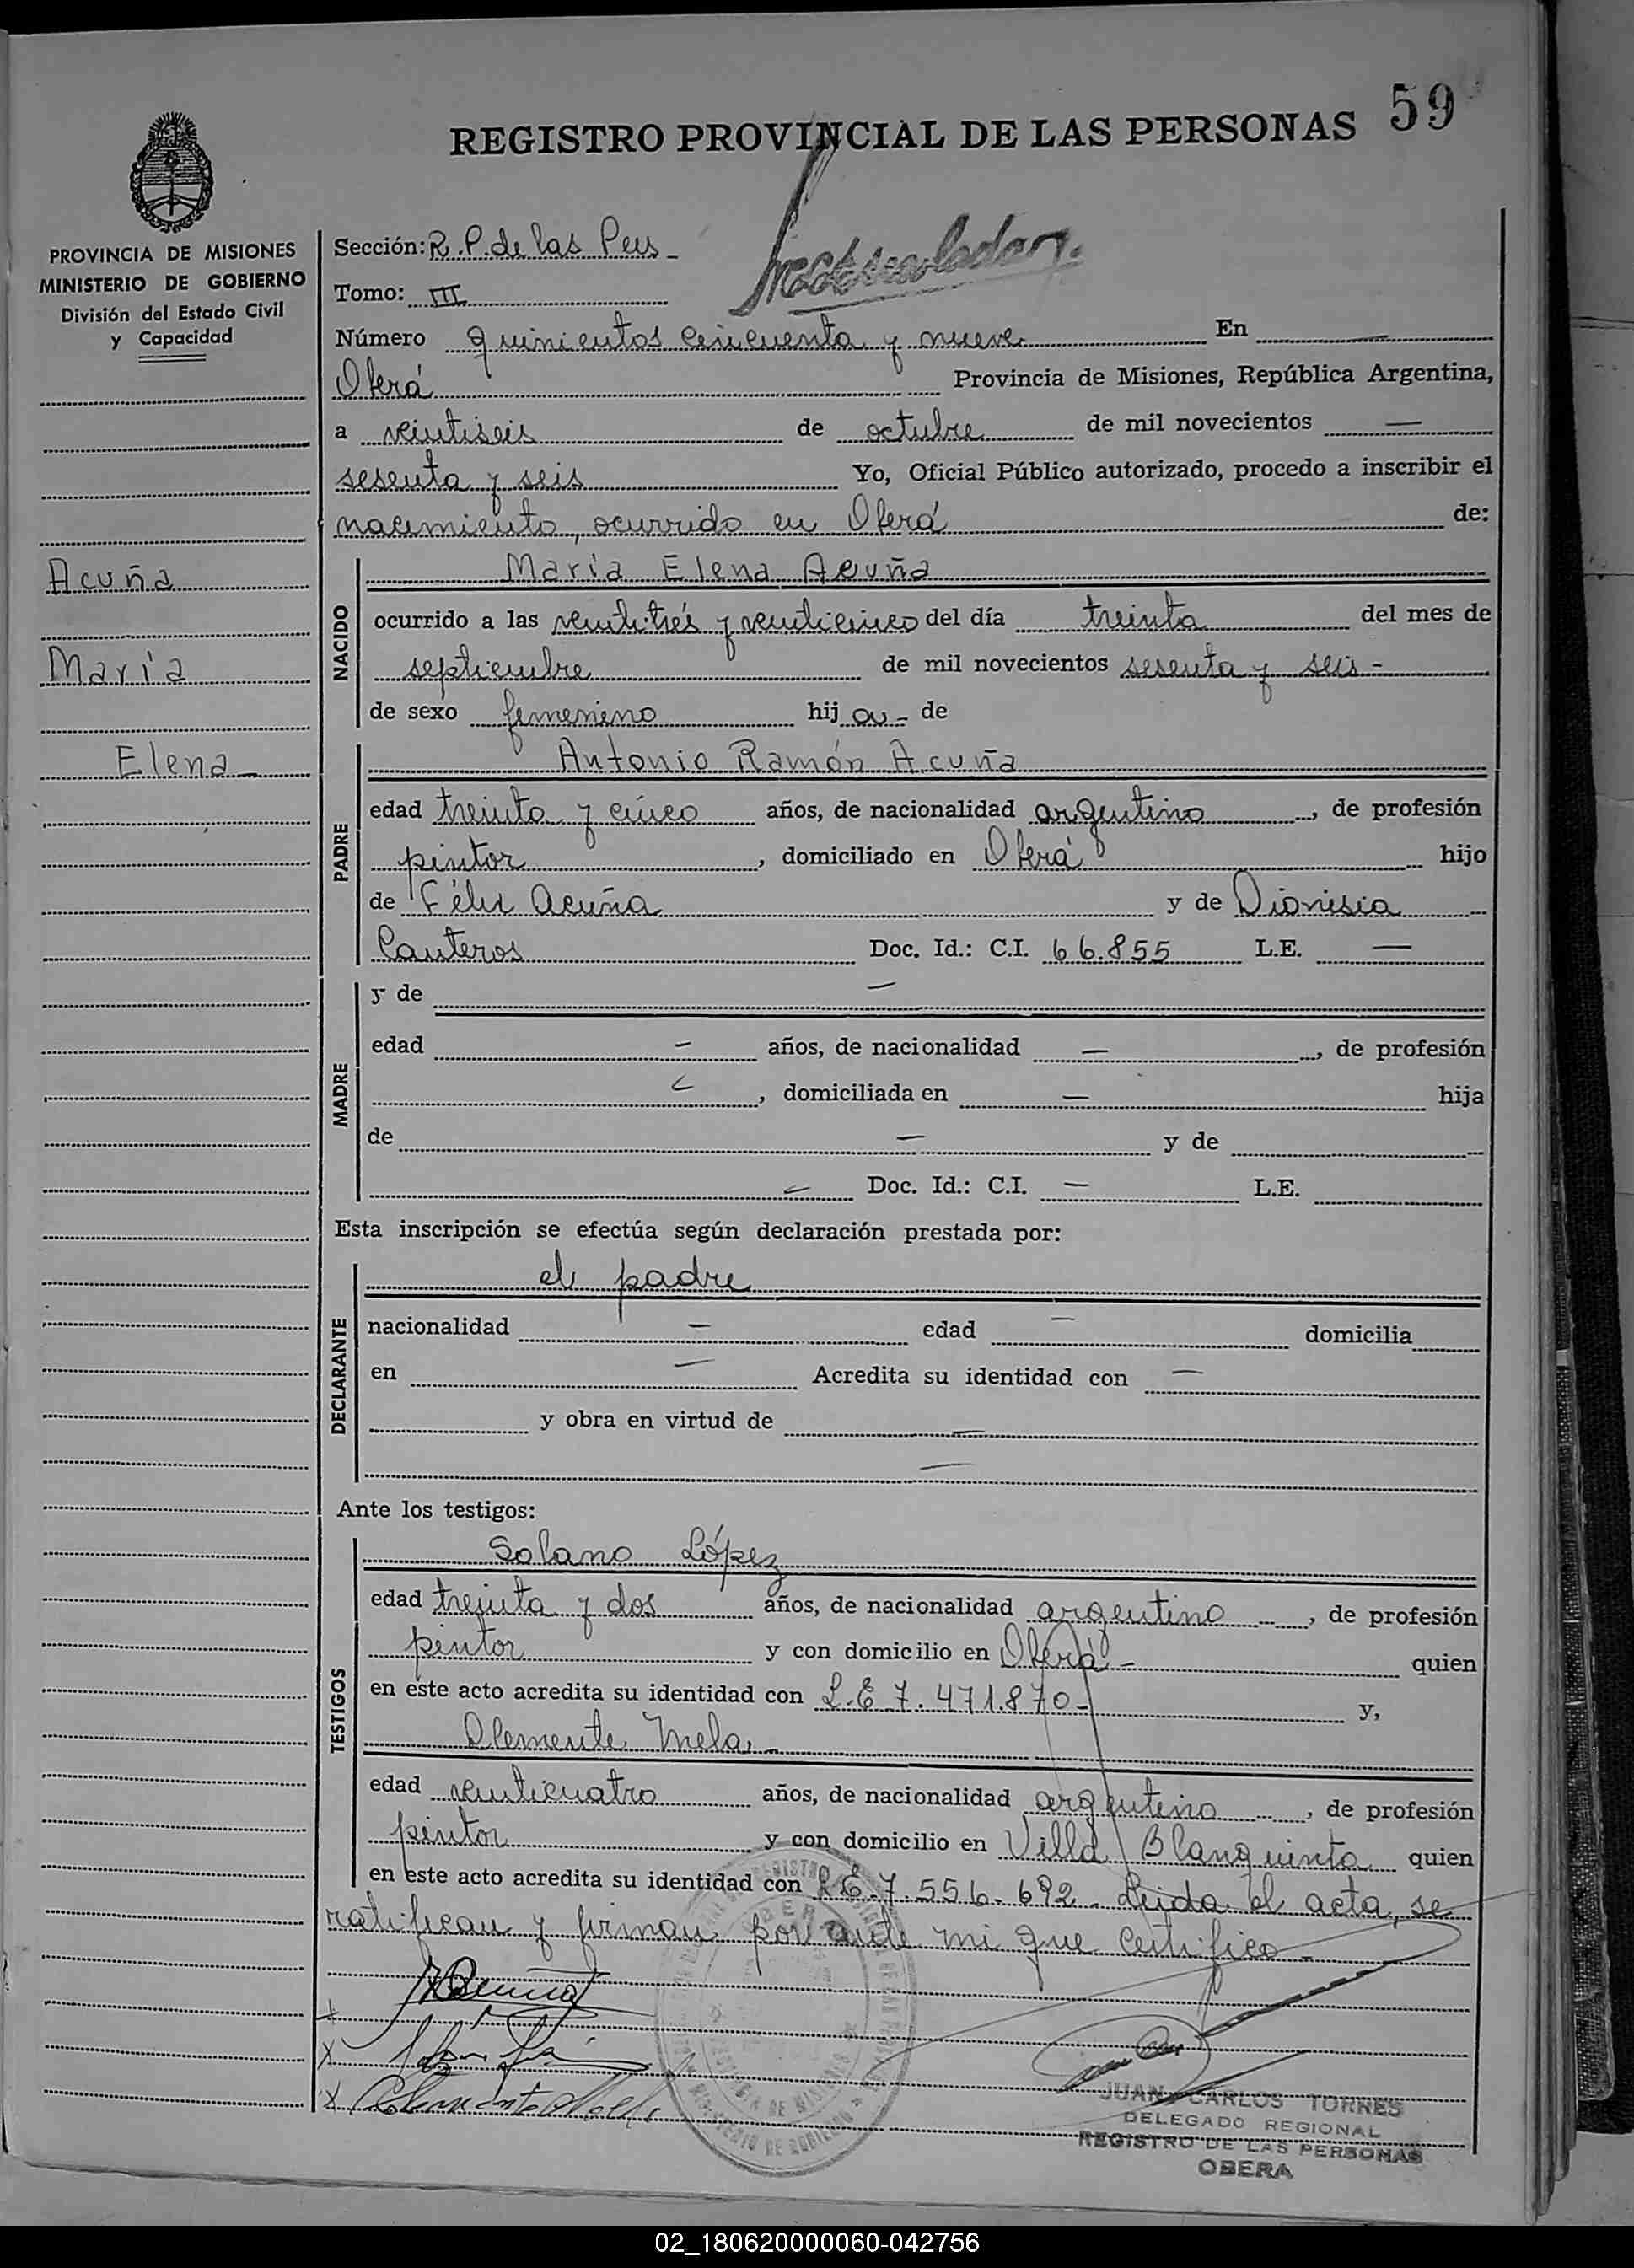 REGISTRO PROVINCIAL DE LAS PERSONAS 59
PROVINCIA DE MISIONES
MINISTERIO DE GOBIERNO
División del Estado Civil
y Capacidad
Acuña
María
Elena
Sección: R.P. de las Pers
Tomo: III
Número quinientos cincuenta y nueve En
Oberá Provincia de Misiones, República Argentina,
a veintiseis de octubre de mil novecientos —
sesenta y seis Yo, Oficial Público autorizado, procedo a inscribir el
nacimiento, ocurrido en Oberá de:
NACIDO
María Elena Acuña
ocurrido a las veintitrés y veinticinco del día treinta del mes de
septiembre de mil novecientos sesenta y seis -
de sexo femenino hij a - de
PADRE
Antonio Ramón Acuña
edad treinta y cinco años, de nacionalidad argentino, de profesión
pintor, domiciliado en Oberá hijo
de Félix Acuña y de Dionisia
Canteros Doc. Id.: C.I. 66.855 L.E. —
MADRE
y de —
edad — años, de nacionalidad —, de profesión
—, domiciliada en — hija
de — y de
— Doc. Id.: C.I. — L.E.
Esta inscripción se efectúa según declaración prestada por:
DECLARANTE
el padre
nacionalidad — edad — domicilia
en — Acredita su identidad con —
y obra en virtud de —
—
Ante los testigos:
TESTIGOS
Solano López
edad treinta y dos años, de nacionalidad argentino, de profesión
pintor y con domicilio en Oberá - quien
en este acto acredita su identidad con L.E 7.471.870- y,
Clemente Mela
edad veinticuatro años, de nacionalidad argentino, de profesión
pintor y con domicilio en Villa Blanquinta quien
en este acto acredita su identidad con L.E 7.556.692. Leida el acta, se
ratifican y firman por ante mi que certifico -
JUAN CARLOS TORRES
DELEGADO REGIONAL
REGISTRO DE LAS PERSONAS
OBERA
02_180620000060-042756